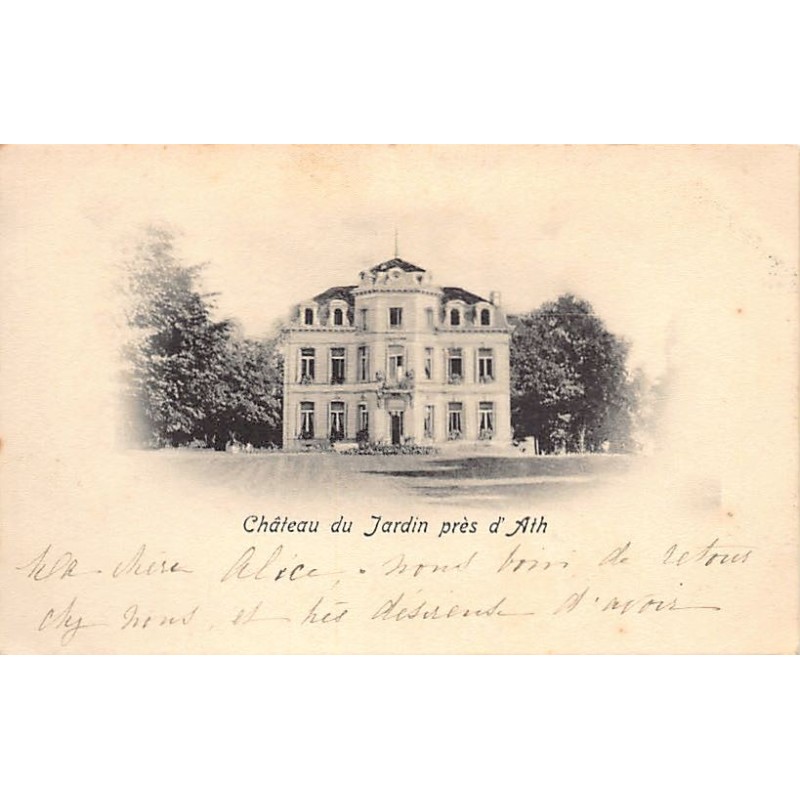 Château du Jardin près d'Ath
Ma chère Alice, nous voici de retour
chez nous, et très désireuse d'avoir